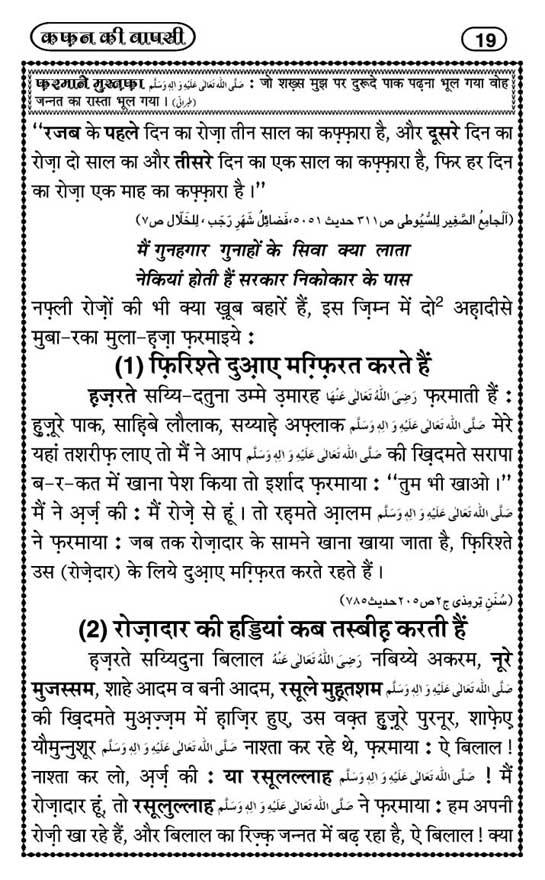 कफ़न की वापसी
19
फ़रमाने मुस्त़फ़ा صَلَّى اللهُ تَعَالٰى عَلَيْهِ وَاٰلِهٖ وَسَلَّم : जो शख़्स मुझ पर दुरूदे पाक पढ़ना भूल गया वोह
जन्नत का रास्ता भूल गया । (طبرانی)
‘‘रजब के पहले दिन का रोज़ा तीन साल का कफ़्फ़ारा है, और दूसरे दिन का
रोज़ा दो साल का और तीसरे दिन का एक साल का कफ़्फ़ारा है, फिर हर दिन
का रोज़ा एक माह का कफ़्फ़ारा है ।’’
(اَلْجامِعُ الصَّغِیر لِلسُّیُوطی ص۳۱۱ حدیث ۵۰۵۱، فَضائِلُ شَهْرِ رَجَب ، لِلخَلّال ص۷)
मैं गुनहगार गुनाहों के सिवा क्या लाता
नेकियां होती हैं सरकार निकोकार के पास
नफ़्ली रोज़ों की भी क्या ख़ूब बहारें हैं, इस ज़िम्न में दो2 अह़ादीसे
मुबा-रका मुला-ह़ज़ा फ़रमाइये :
(1) फ़िरिश्ते दुआ़ए मग़्फ़िरत करते हैं
ह़ज़रते सय्यि-दतुना उम्मे उ़मारह رَضِیَ اللهُ تَعَالٰی عَنْهَا फ़रमाती हैं :
हुज़ूरे पाक, साह़िबे लौलाक, सय्याह़े अफ़्लाक صَلَّى اللهُ تَعَالٰى عَلَيْهِ وَاٰلِهٖ وَسَلَّم मेरे
यहां तशरीफ़ लाए तो मैं ने आप صَلَّى اللهُ تَعَالٰى عَلَيْهِ وَاٰلِهٖ وَسَلَّم की ख़िदमते सरापा
ब-र-कत में खाना पेश किया तो इर्शाद फ़रमाया : ‘‘तुम भी खाओ ।’’
मैं ने अ़र्ज़ की : मैं रोज़े से हूं । तो रह़मते आ़लम صَلَّى اللهُ تَعَالٰى عَلَيْهِ وَاٰلِهٖ وَسَلَّم
ने फ़रमाया : जब तक रोज़ादार के सामने खाना खाया जाता है, फ़िरिश्ते
उस (रोज़ेदार) के लिये दुआ़ए मग़्फ़िरत करते रहते हैं ।
(سُنَنِ تِرمِذی ج۲ص۲۰۵حدیث۷۸۵)
(2) रोज़ादार की हड्डियां कब तस्बीह़ करती हैं
ह़ज़रते सय्यिदुना बिलाल رَضِیَ اللهُ تَعَالٰی عَنْهُ नबिय्ये अकरम, नूरे
मुजस्सम, शाहे आदम व बनी आदम, रसूले मुह़्तशम صَلَّى اللهُ تَعَالٰى عَلَيْهِ وَاٰلِهٖ وَسَلَّم
की ख़िदमते मुअ़ज़्ज़म में ह़ाज़िर हुए, उस वक़्त हुज़ूरे पुरनूर, शाफ़ेए
यौमुन्नुशूर صَلَّى اللهُ تَعَالٰى عَلَيْهِ وَاٰلِهٖ وَسَلَّم नाश्ता कर रहे थे, फ़रमाया : ऐ बिलाल !
नाश्ता कर लो, अ़र्ज़ की : या रसूलल्लाह صَلَّى اللهُ تَعَالٰى عَلَيْهِ وَاٰلِهٖ وَسَلَّم ! मैं
रोज़ादार हूं, तो रसूलुल्लाह صَلَّى اللهُ تَعَالٰى عَلَيْهِ وَاٰلِهٖ وَسَلَّم ने फ़रमाया : हम अपनी
रोज़ी खा रहे हैं, और बिलाल का रिज़्क़ जन्नत में बढ़ रहा है, ऐ बिलाल ! क्या